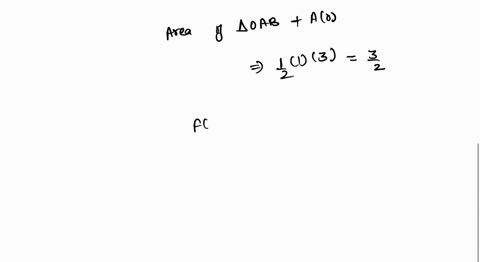 Area of ΔOAB + A(0)
⇒ 1/2 (1) (3) = 3/2
f(